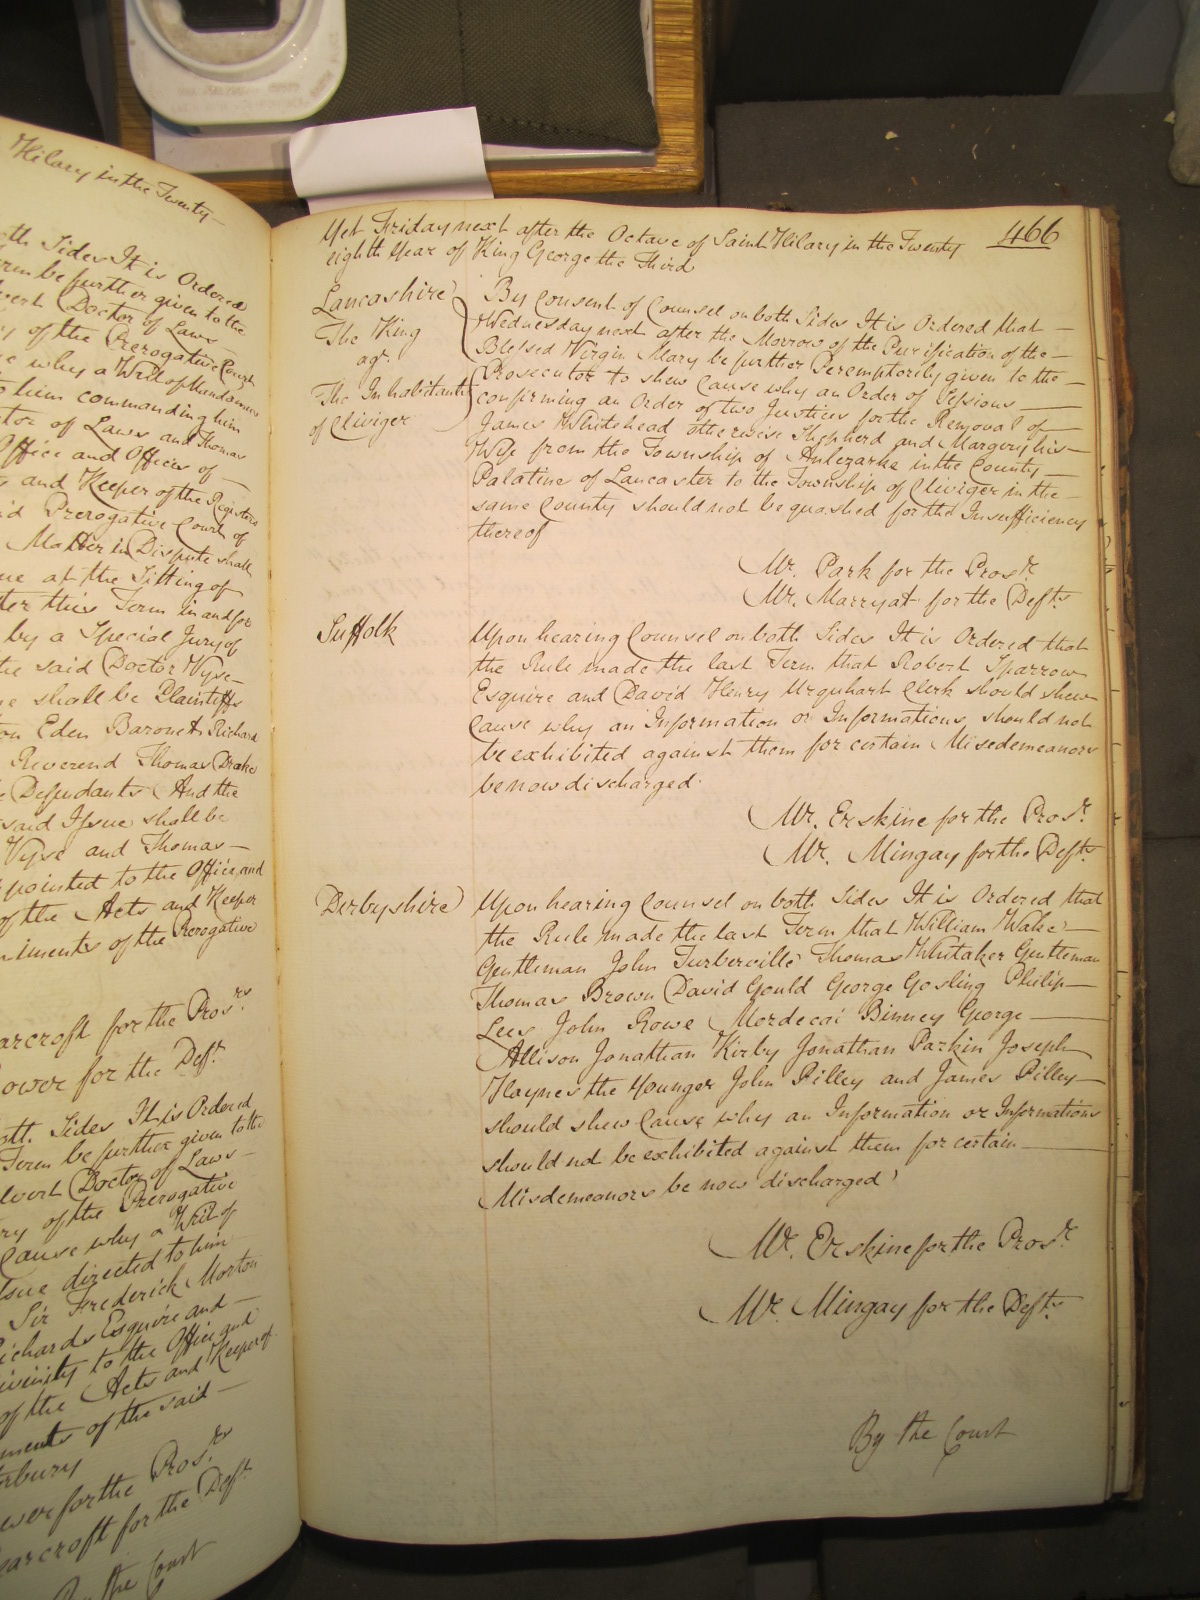 Hilary in the Twenty
th Sides It is Ordered
rm be further given to the
vert Doctor of Laws
y of the Prerogative Court
e why a Writ of Mandamus
o him commanding him
tor of Laws and Thomas
Office and Offices of
s and Keeper of the Registers
id Prerogative Court of
Matter in Dispute shall
ue at the Sitting of
ter this Term in and for
by a Special Jury of
he said Doctor Vyse
e shall be Plaintiffs
on Eden Baronet Richard
Reverend Thomas Drake
e Defendants And the
said Issue shall be
Vyse and Thomas
pointed to the Office and
of the Acts and Keeper
uments of the Prerogative
earcroft for the Pros.rs
ower for the Deft.
oth Sides It is Ordered
Term be further given to the
lvert Doctor of Laws
ry of the Prerogative
Cause why a Writ of
ssue directed to him
Sir Frederick Morton
ichards Esquire and
ivinity to the Office and
of the Acts and Keeper of
ments of the said
erbury
ower for the Pros.rs
earcroft for the Deft.
By the Court
Yet Friday next after the Octave of Saint Hilary in the Twenty 466
eighth Year of King George the Third
Lancashire
The King
agt.
The Inhabitants
of Cliviger
By Consent of Counsel on both Sides It is Ordered that
Wednesday next after the Morrow of the Purification of the
Blessed Virgin Mary be further Peremptorily given to the
Prosecutor to shew Cause why an Order of Sessions
confirming an Order of two Justices for the Removal of
James Whitehead otherwise Shepherd and Margery his
Wife from the Township of Anlezarke in the County
Palatine of Lancaster to the Township of Cliviger in the
same County should not be quashed for the Insufficiency
thereof
Mr. Park for the Prosr.
Mr. Marryat for the Defts.
Suffolk
Upon hearing Counsel on both Sides It is Ordered that
the Rule made the last Term that Robert Sparrow
Esquire and David Henry Urquhart Clerk should shew
Cause why an Information or Informations should not
be exhibited against them for certain Misedemeanors
be now discharged
Mr. Erskine for the Prosr.
Mr. Mingay for the Defts.
Derbyshire
Upon hearing Counsel on both Sides It is Ordered that
the Rule made the last Term that William Wake
Gentleman John Turberville Thomas Whitaker Gentleman
Thomas Brown David Gould George Gosling Philip
Lees John Rowe Mordecai Binney George
Allison Jonathan Kirby Jonathan Parkin Joseph
Haynes the Younger John Pilley and James Pilley
should shew Cause why an Information or Informations
should not be exhibited against them for certain
Misdemeanors be now discharged
Mr. Erskine for the Prosr.
Mr. Mingay for the Defts.
By the Court